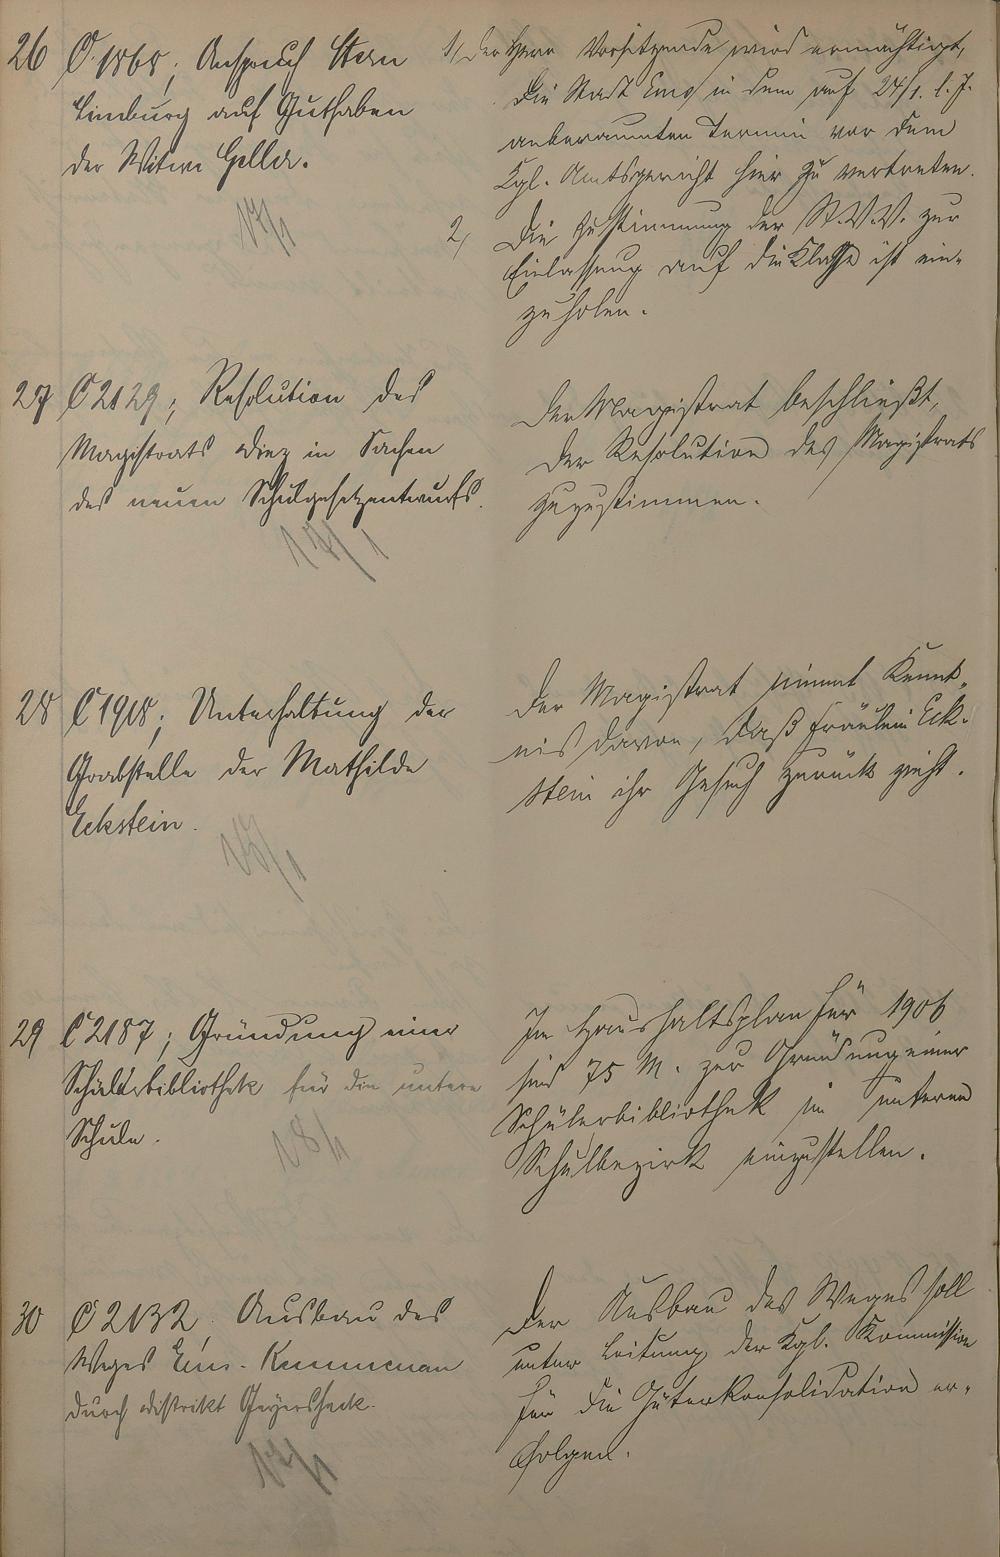 26 C. 1868; Anspruch Stern
Limburg auf Guthaben
der Witwe Geller.
17/1
1, Der Herr Vorsitzende wird ermächtigt,
die Stadt Ems in dem auf 24/1. l. J.
anberaumten Termin vor dem
Kgl. Amtsgericht hier zu vertreten.
2, Die Zustimmung der St.V.V. zur
Einlassung auf die Klage ist ein-
zuholen.
27 C 2129; Resolution des
Magistrats Diez in Sachen
des neuen Schulgesetzentwurfs.
17/1
Der Magistrat beschließt,
der Resolution des Magistrats
zuzustimmen.
28 C 1918; Unterhaltung der
Grabstelle der Mathilde
Eckstein.
17/1
Der Magistrat nimmt Kennt-
nis davon, daß Fräulein Eck-
stein ihr Gesuch zurück zieht.
29 C 2187; Gründung einer
Schülerbibliothek für die untere
Schule.
18/1
Im Haushaltsplan für 1906
sind 75 M. zur Gründung einer
Schülerbibliothek im unteren
Schulbezirk einzustellen.
30 C 2132, Ausbau des
Weges Ems - Kemmenau
durch Distrikt Geyersheck.
17/1
Der Ausbau des Weges soll
unter Leitung der Kgl. Kommission
für die Güterkonsolidation er-
folgen.